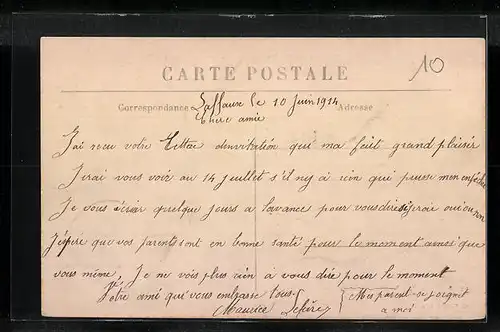 10
CARTE POSTALE
Correspondance Adresse
Laffaux le 10 Juin 1914
Chere amie
J'ai recu votre Lettre d'envitation qui ma fait grand plaisir
J'irai vous voir au 14 juillet s'il n'y a rien qui puese m'en enpêcher
Je vous écrir quelque jours a l'avance pour vous dire si j'irai oui ou non
J'éspére que vos parents sont en bonne santé pour le moment ainsi que
vous même, Je ne vois plus rien à vous dire pour le moment
Votre ami qui vous embrasse tous
Maurice Lefére
Mes parent se joignet
a moi